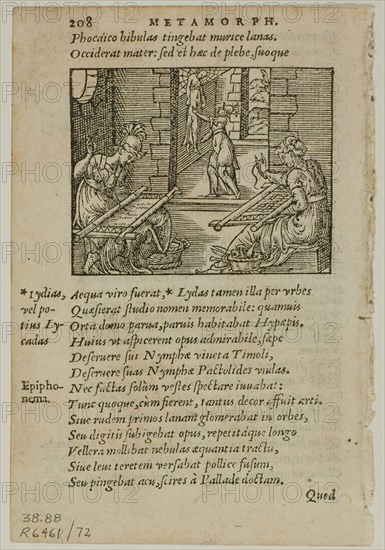 208 METAMORPH.
Phocaico bibulas tingebat murice lanas.
Occiderat mater: sed et hæc de plebe, suoque
*lydias, Aequa viro fuerat, * Lydas tamen illa per vrbes
vel po- Quæsierat studio nomen memorabile: quamuis
tius Ly- Orta domo parua, paruis habitabat Hypæpis.
cadas Huius vt aspicerent opus admirabile, sæpe
Deseruere sui Nymphæ vineta Timoli,
Deseruere suas Nymphæ Pactolides vndas.
Epipho- Nec factas solùm vestes spectare iuuabat:
nema. Tunc quoque, cùm fierent, tantus decor affuit arti.
Siue rudem primos lanam glomerabat in orbes,
Seu digitis subigebat opus, repetitáque longo
Vellera mollibat nebulas æquantia tractu,
Siue leui teretem versabat pollice fusum,
Seu pingebat acu, scires à Pallade doctam.
Quod
38.88
R6461/72